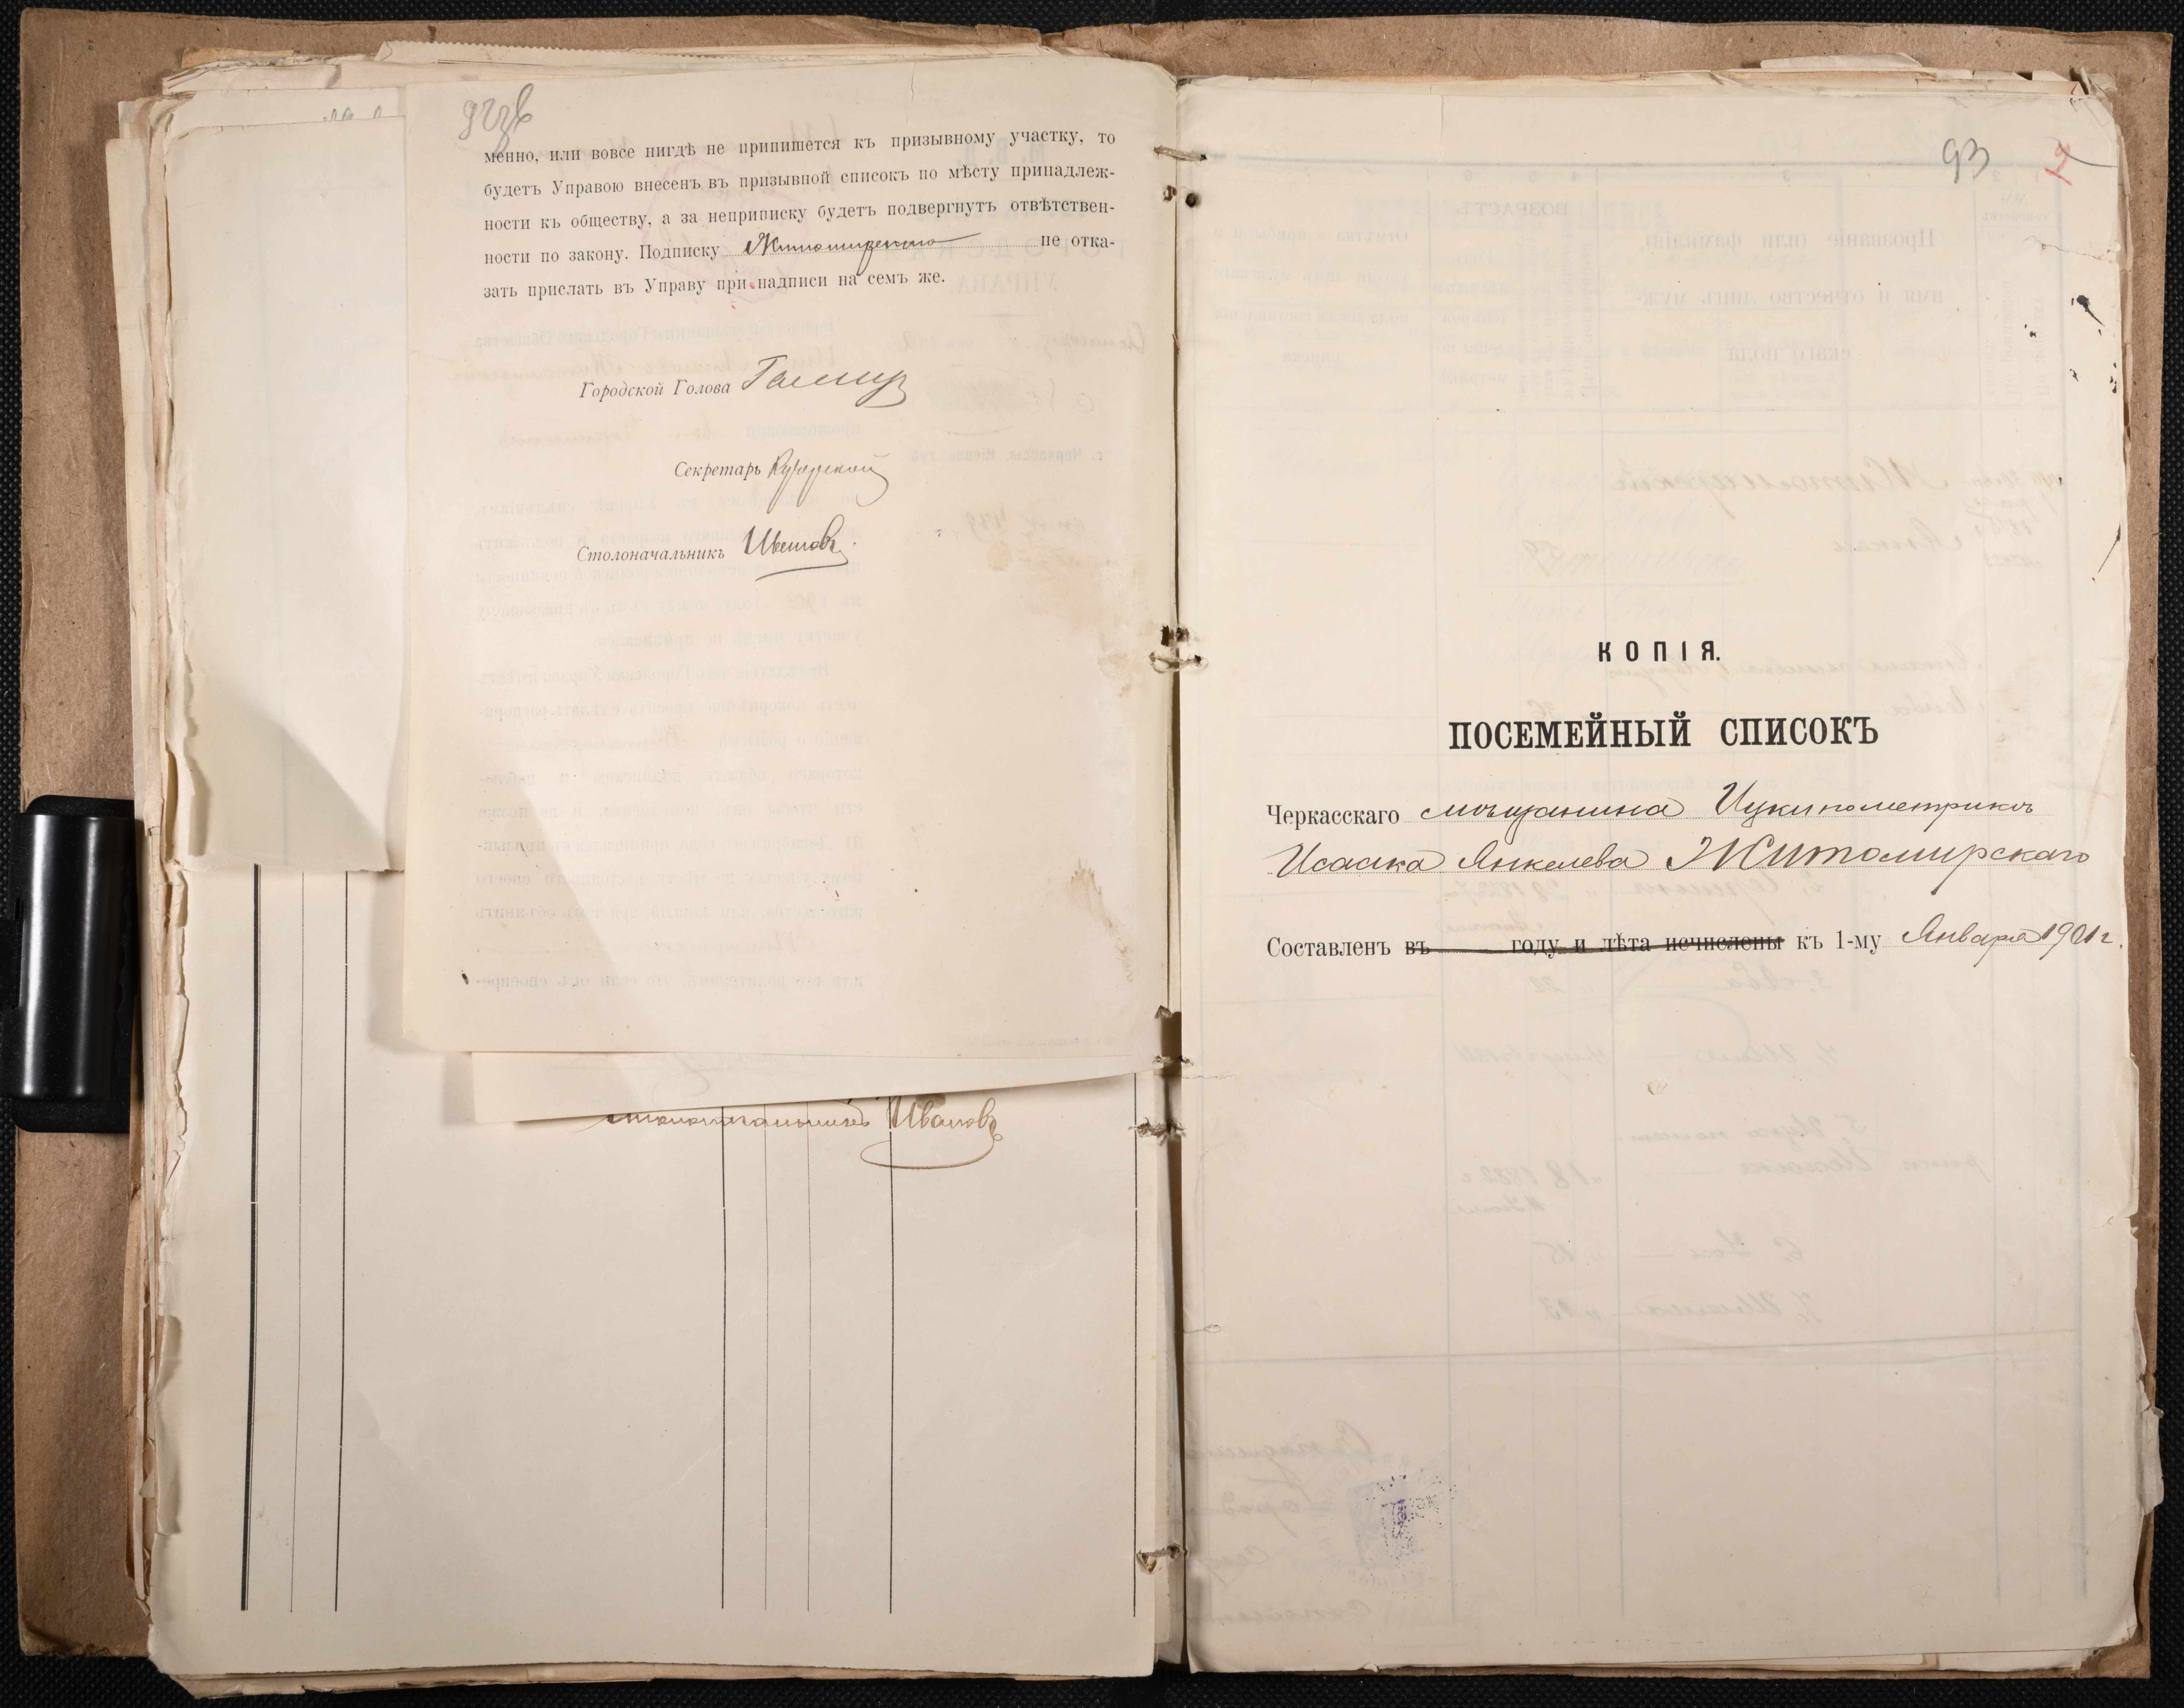 менно, или вовсе нигдѣ не припишется къ призывному участку, то
будетъ Управою внесенъ въ призывной списокъ по мѣсту принадлеж-
ности къ обществу, а за неприписку будетъ подвергнутъ отвѣтствен-
ности по закону. Подписку Житомирскаго не отка-
зать прислать въ Управу при надписи на семъ же.
Городской Голова
Секретарь
Столоначальникъ Ивановъ
столоначальникъ Ивановъ
93
КОПІЯ.
ПОСЕМЕЙНЫЙ СПИСОКЪ
Черкасскаго мѣщанина Ицки по метрикѣ
Исаака Янкелева Житомирскаго
Составленъ въ году и лѣта исчислены къ 1-му Января 1901 г.